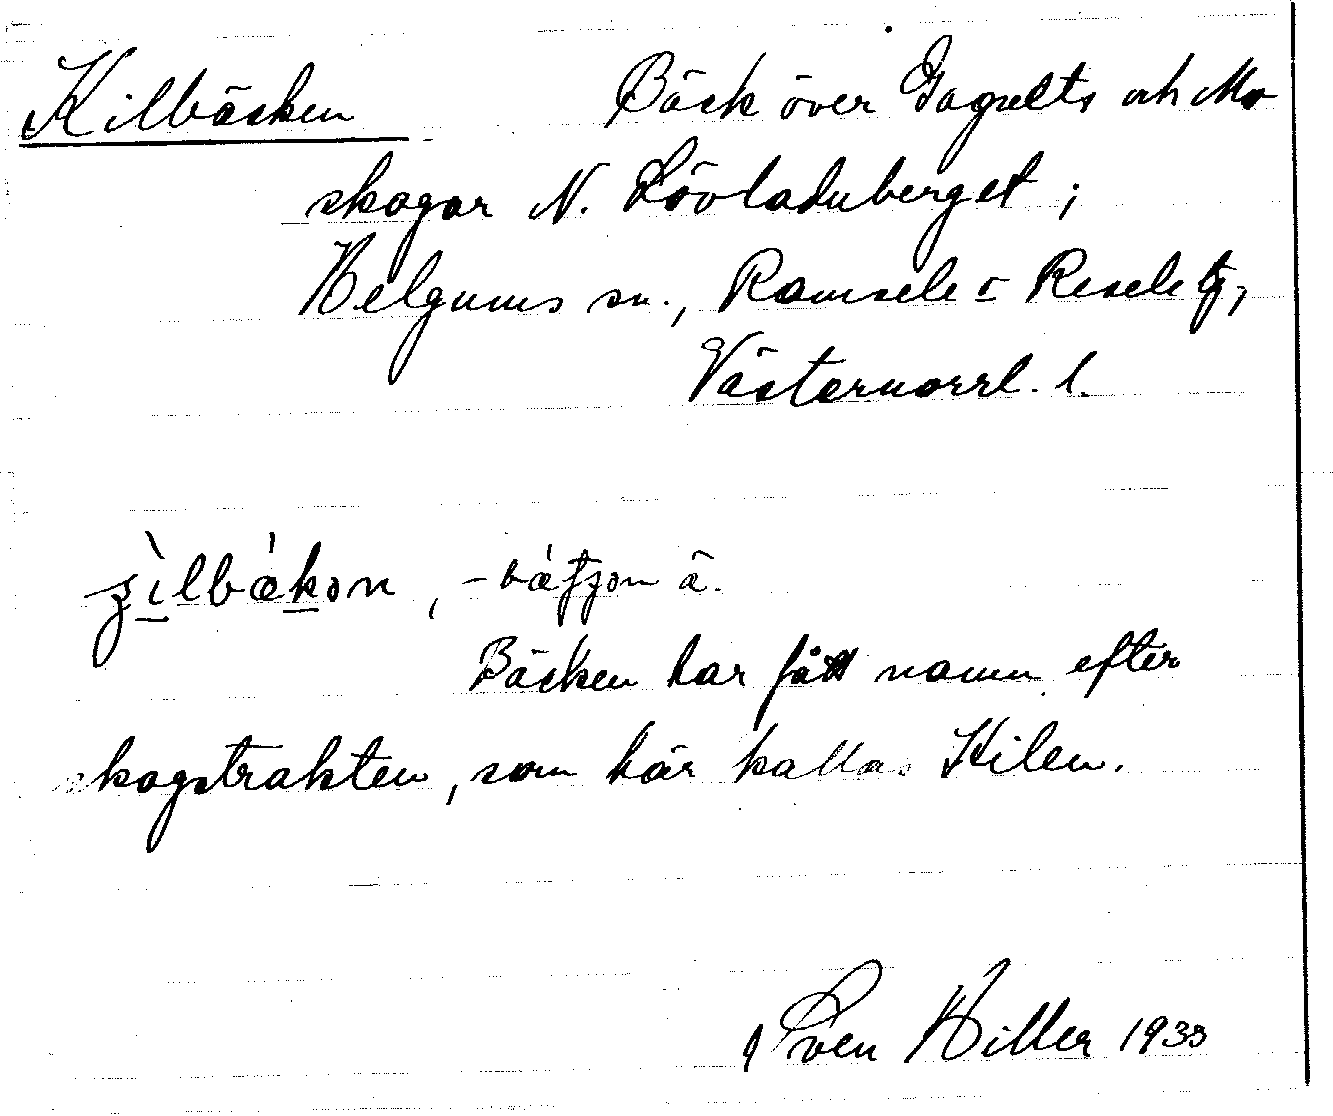 Kilbäcken Bäck över Gagnets och Mo
skogar N. Lövladuberget;
Helgums sn., Ramsele o Resele tg,
Västernorrl. l.
bäcken har fått namn efter
skogstrakten, som här kallas Kilen.
Sven Hiller 1933